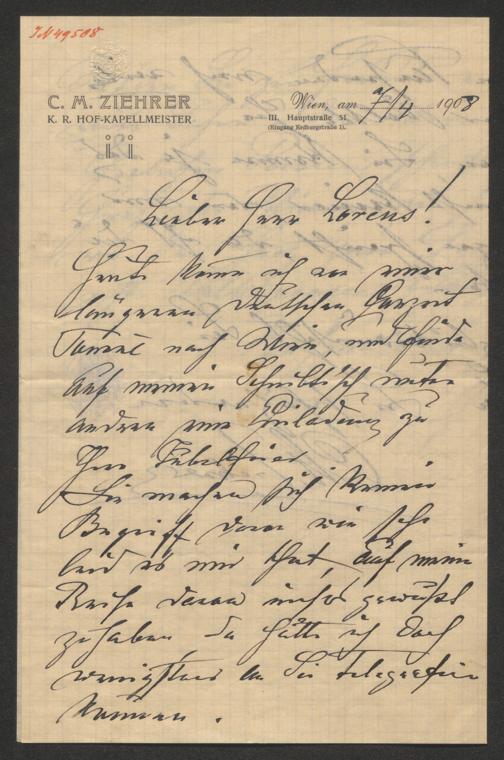 IN 49508
C. M. ZIEHRER
K. R. HOF-KAPELLMEISTER
Wien, am 7/4 1908
III. Hauptstraße 51
(Eingang Kedburgstraße 1).
Lieber Herr Lorens!
Heute komme ich von einer
längeren Deutschen Conzert
Tournè nach Wien, und finde
auf meinem Schreibtisch unter
andern eine Einladung zu
Ihrer Jubelfeier
Sie machen sich keinen
Begriff davon wie sehr
leid es mir that, auf meiner
Reise davon nichts gewußt
zu haben da hätte ich doch
wenigstens an Sie telegrafieren
können.